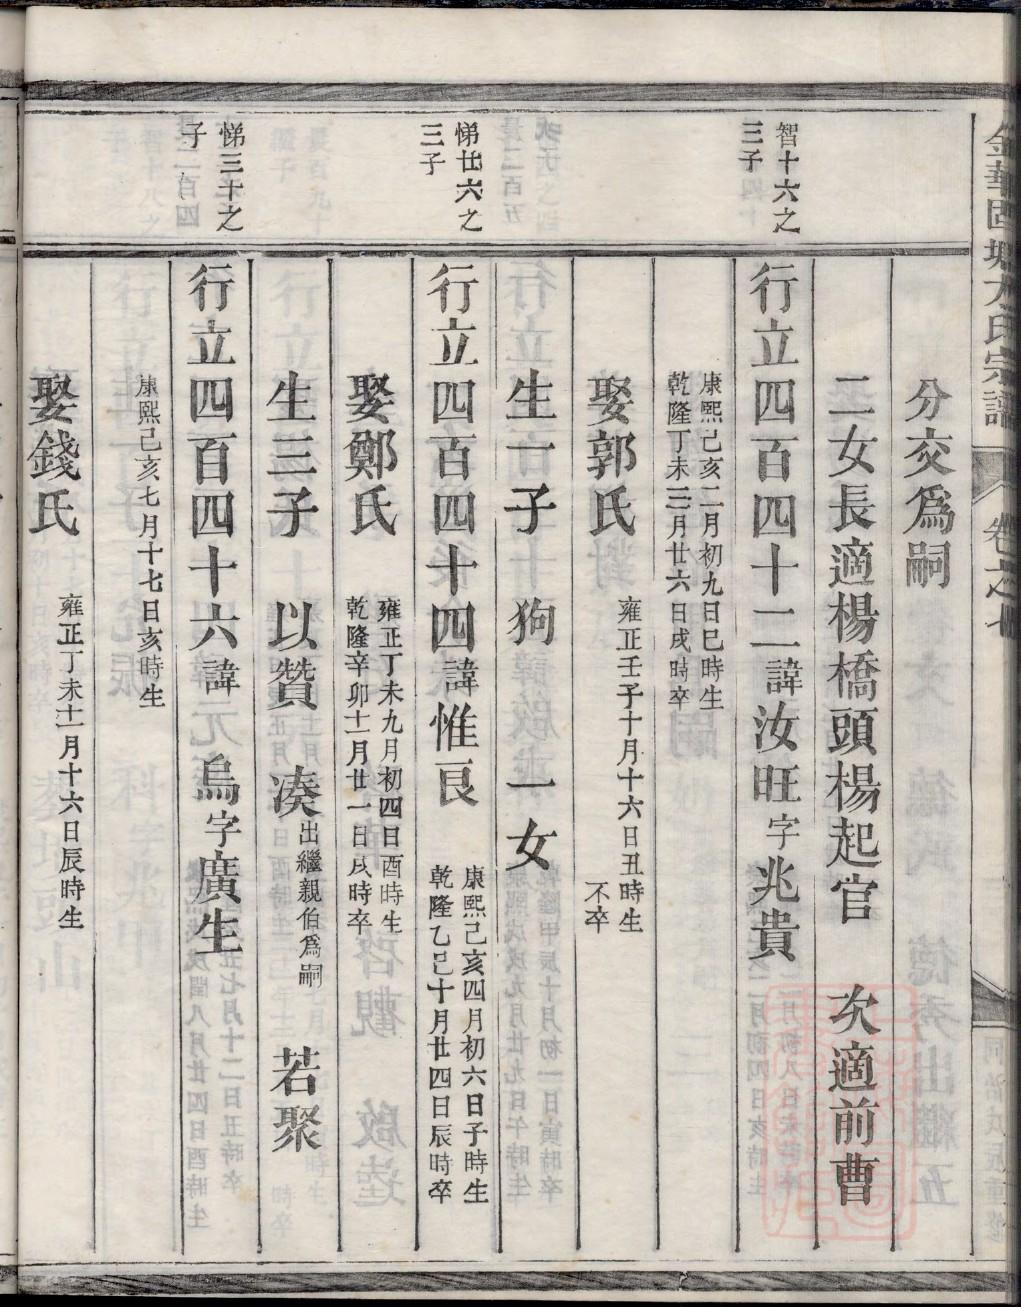 金華固塘方氏宗譜
分交爲嗣
二女長適楊橋頭楊起官　次適前曹
智十六之
三子
行立四百四十二諱汝旺字兆貴
康熙己亥二月初九日巳時生
乾隆丁未三月廿六日戌時卒
娶郭氏
雍正壬子十月十六日丑時生
不卒
生一子　狗　一女
悌廿六之
三子
行立四百四十四諱惟良
康熙己亥四月初六日子時生
乾隆乙巳十月廿四日辰時卒
娶鄭氏
雍正丁未九月初四日酉時生
乾隆辛卯十一月廿一日戌時卒
生三子　以贊　湊出繼親伯爲嗣　若聚
悌三十之
子
行立四百四十六諱元烏字廣生
康熙己亥七月十七日亥時生
娶錢氏
雍正丁未十一月十六日辰時生